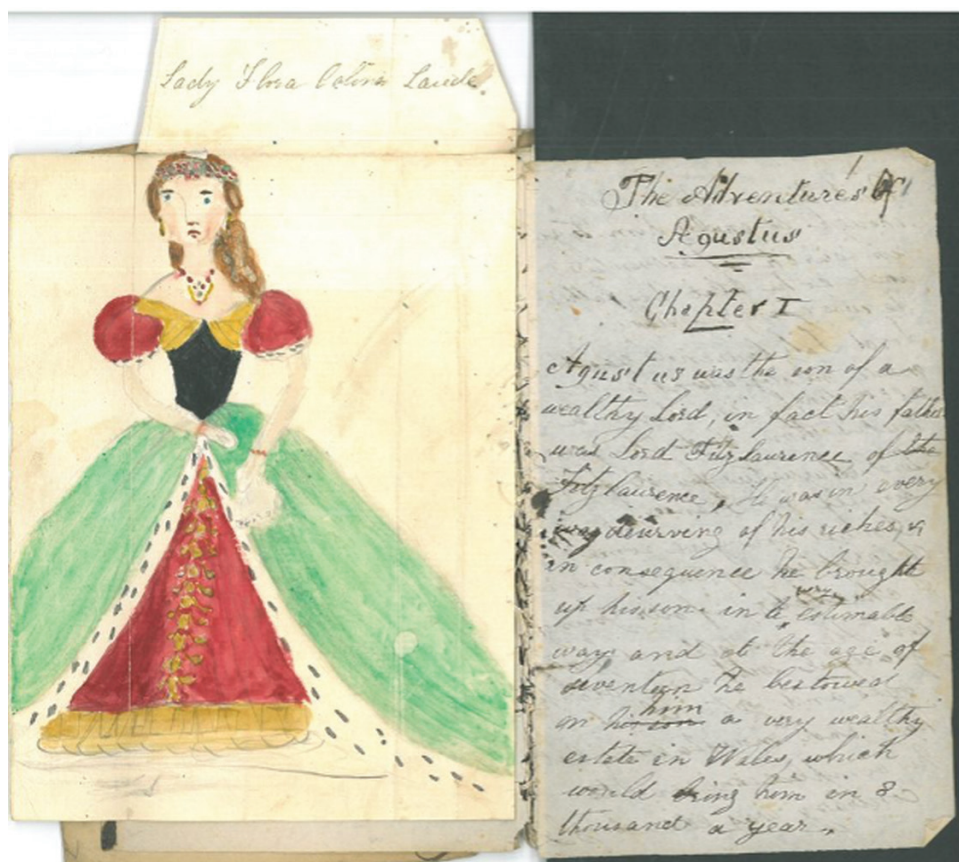 Lady Flora
The Adventures of
Agustus
Chapter I
Agustus was the son of a
wealthy Lord, in fact his father
was Lord Fitzlaurence of the
Fitzlaurence, He was in every
way deurving of his riches, &
in consequence he brought
up his son in a very estimable
way and at the age of
seventeen he bestowed
on his son him a very wealthy
estate in Wales, which
would bring him in 8
thousand a year.